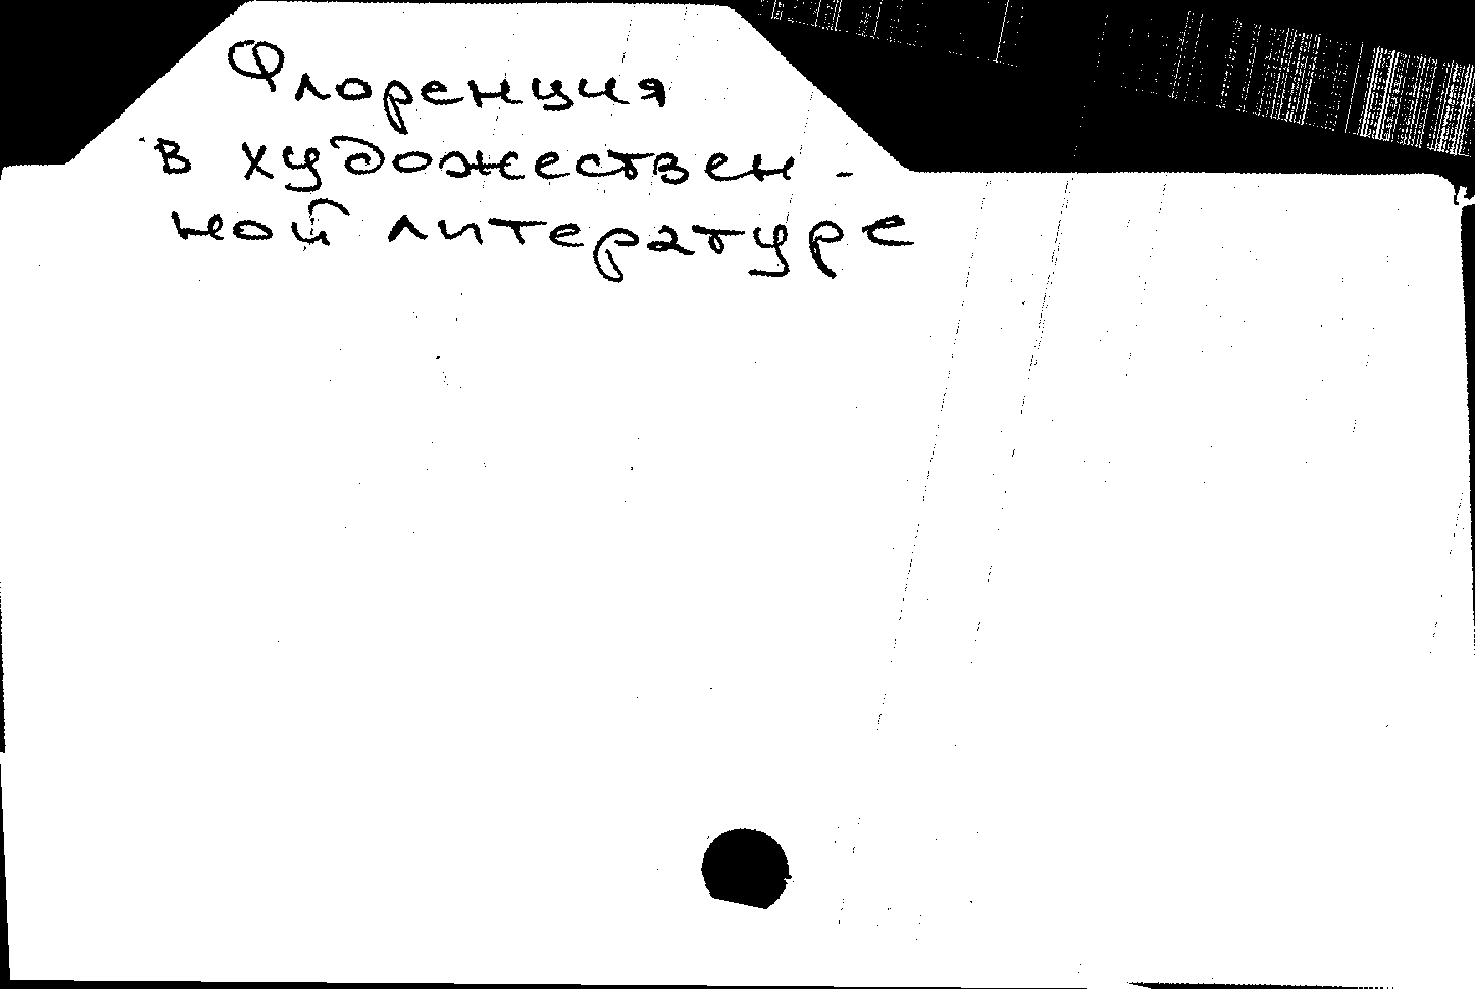 Флоренция
в художествен-
ной литературе